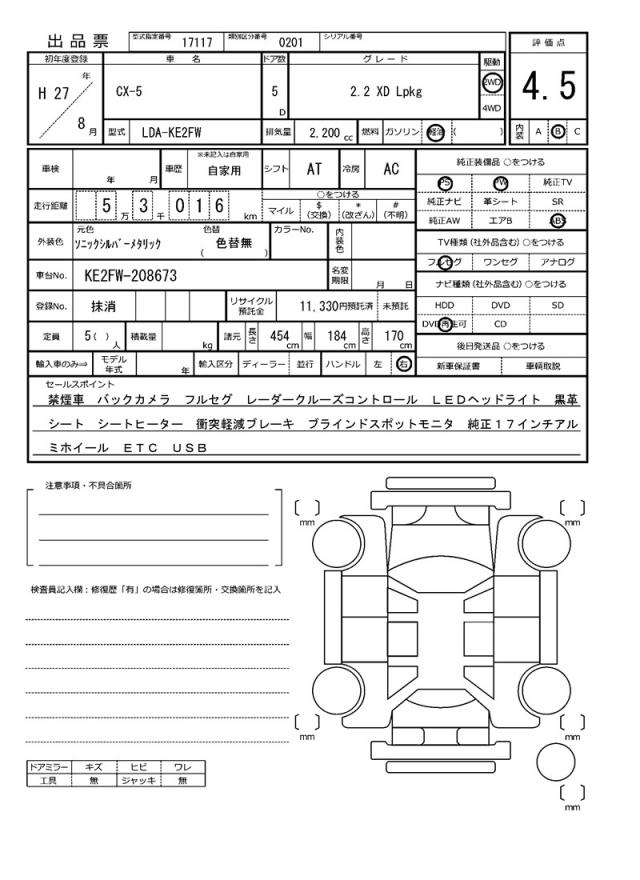 出品票 型式指定番号 17117 類別区分番号 0201 シリアル番号
初年度登録 車名 ドア数 グレード 駆動 評価点
H 27 年 8 月 CX-5 5 D 2.2 XD Lpkg 2WD 4WD 4.5
型式 LDA-KE2FW 排気量 2,200 cc 燃料 ガソリン 軽油 ( ) 内装 A B C
車検 年 月 車歴 ※未記入は自家用 自家用 シフト AT 冷房 AC
走行距離 5 万 3 千 0 1 6 km ○をつける マイル $ (交換) * (改ざん) # (不明)
外装色 元色 ソニックシルバーメタリック 色替 ( 色替無 ) カラーNo. 内装色
車台No. KE2FW-208673 名変期限 月 日
登録No. 抹消 リサイクル預託金 11,330円預託済 未預託
定員 5 ( ) 人 積載量 kg 諸元 長さ 454 cm 幅 184 cm 高さ 170 cm
輸入車のみ⇒ モデル年式 年 輸入区分 ディーラー 並行 ハンドル 左 右
純正装備品 ○をつける
PS PW 純正TV
純正ナビ 革シート SR
純正AW エアB ABS
TV種類 (社外品含む) ○をつける
フルセグ ワンセグ アナログ
ナビ種類 (社外品含む) ○をつける
HDD DVD SD
DVD再生可 CD
後日発送品 ○をつける
新車保証書 車輌取説
セールスポイント
禁煙車 バックカメラ フルセグ レーダークルーズコントロール LEDヘッドライト 黒革
シート シートヒーター 衝突軽減ブレーキ ブラインドスポットモニタ 純正17インチアル
ミホイール ETC USB
注意事項・不具合箇所
検査員記入欄：修復歴「有」の場合は修復箇所・交換箇所を記入
ドアミラー キズ ヒビ ワレ
工具 無 ジャッキ 無
mm
mm
mm
mm
mm